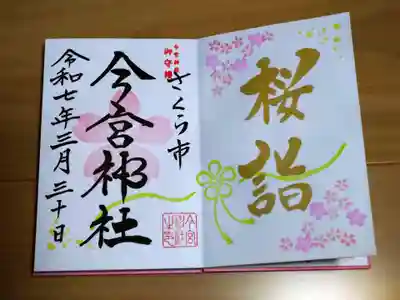 桜詣
さくら市
今宮神社
令和七年三月三十日